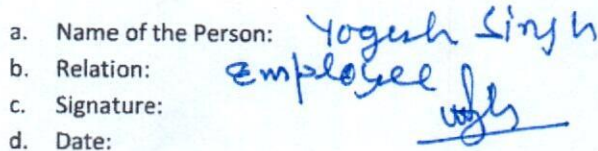 a. Name of the Person: Yogesh Singh
b. Relation: Employee
c. Signature:
d. Date: